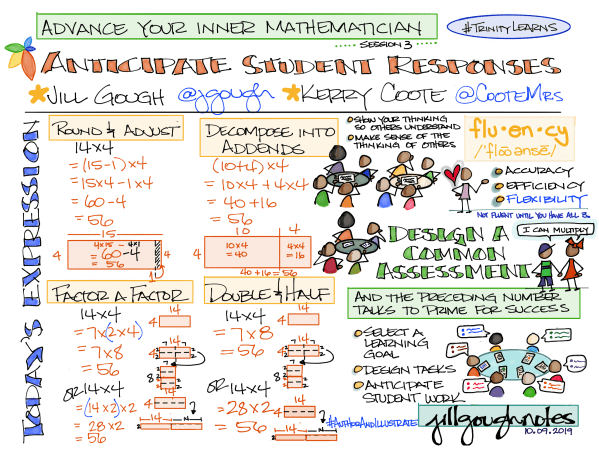 ADVANCE YOUR INNER MATHEMATICIAN
#TRINITYLEARNS
SESSION 3
ANTICIPATE STUDENT RESPONSES
JILL GOUGH @jgough KERRY COOTE @COOTEMRS
TODAY'S EXPRESSION
ROUND & ADJUST
14x4
=(15-1)x4
=15x4-1x4
=60-4
=56
15
4
4x15 - 4x1
=60-4
=56
4
1
DECOMPOSE INTO
ADDENDS
14x4
(10+4)x4
=10x4+4x4
=40+16
=56
10 4
4
10x4
=40
4x4
=16
4
40+16=56
FACTOR A FACTOR
14x4
=7x(2x4)
=7x8
=56
14
4
OR 14x4
=(14x2)x2
=28x2
=56
14
4
14
DOUBLE & HALF
14x4
=7x8
=56
14
4
OR 14x4
=28x2
=56
14
4
14
SHOW YOUR THINKING
SO OTHERS UNDERSTAND
MAKE SENSE OF THE
THINKING OF OTHERS
flu·en·cy
/'flo͞oənsē/
ACCURACY
EFFICIENCY
FLEXIBILITY
NOT FLUENT UNTIL YOU HAVE ALL 3.
DESIGN A
COMMON
ASSESSMENT
I CAN MULTIPLY
AND THE PRECEDING NUMBER
TALKS TO PRIME FOR SUCCESS
SELECT A
LEARNING
GOAL
DESIGN TASKS
ANTICIPATE
STUDENT WORK
#AUTHORANDILLUSTRATE
jillgoughnotes
10.09.2019